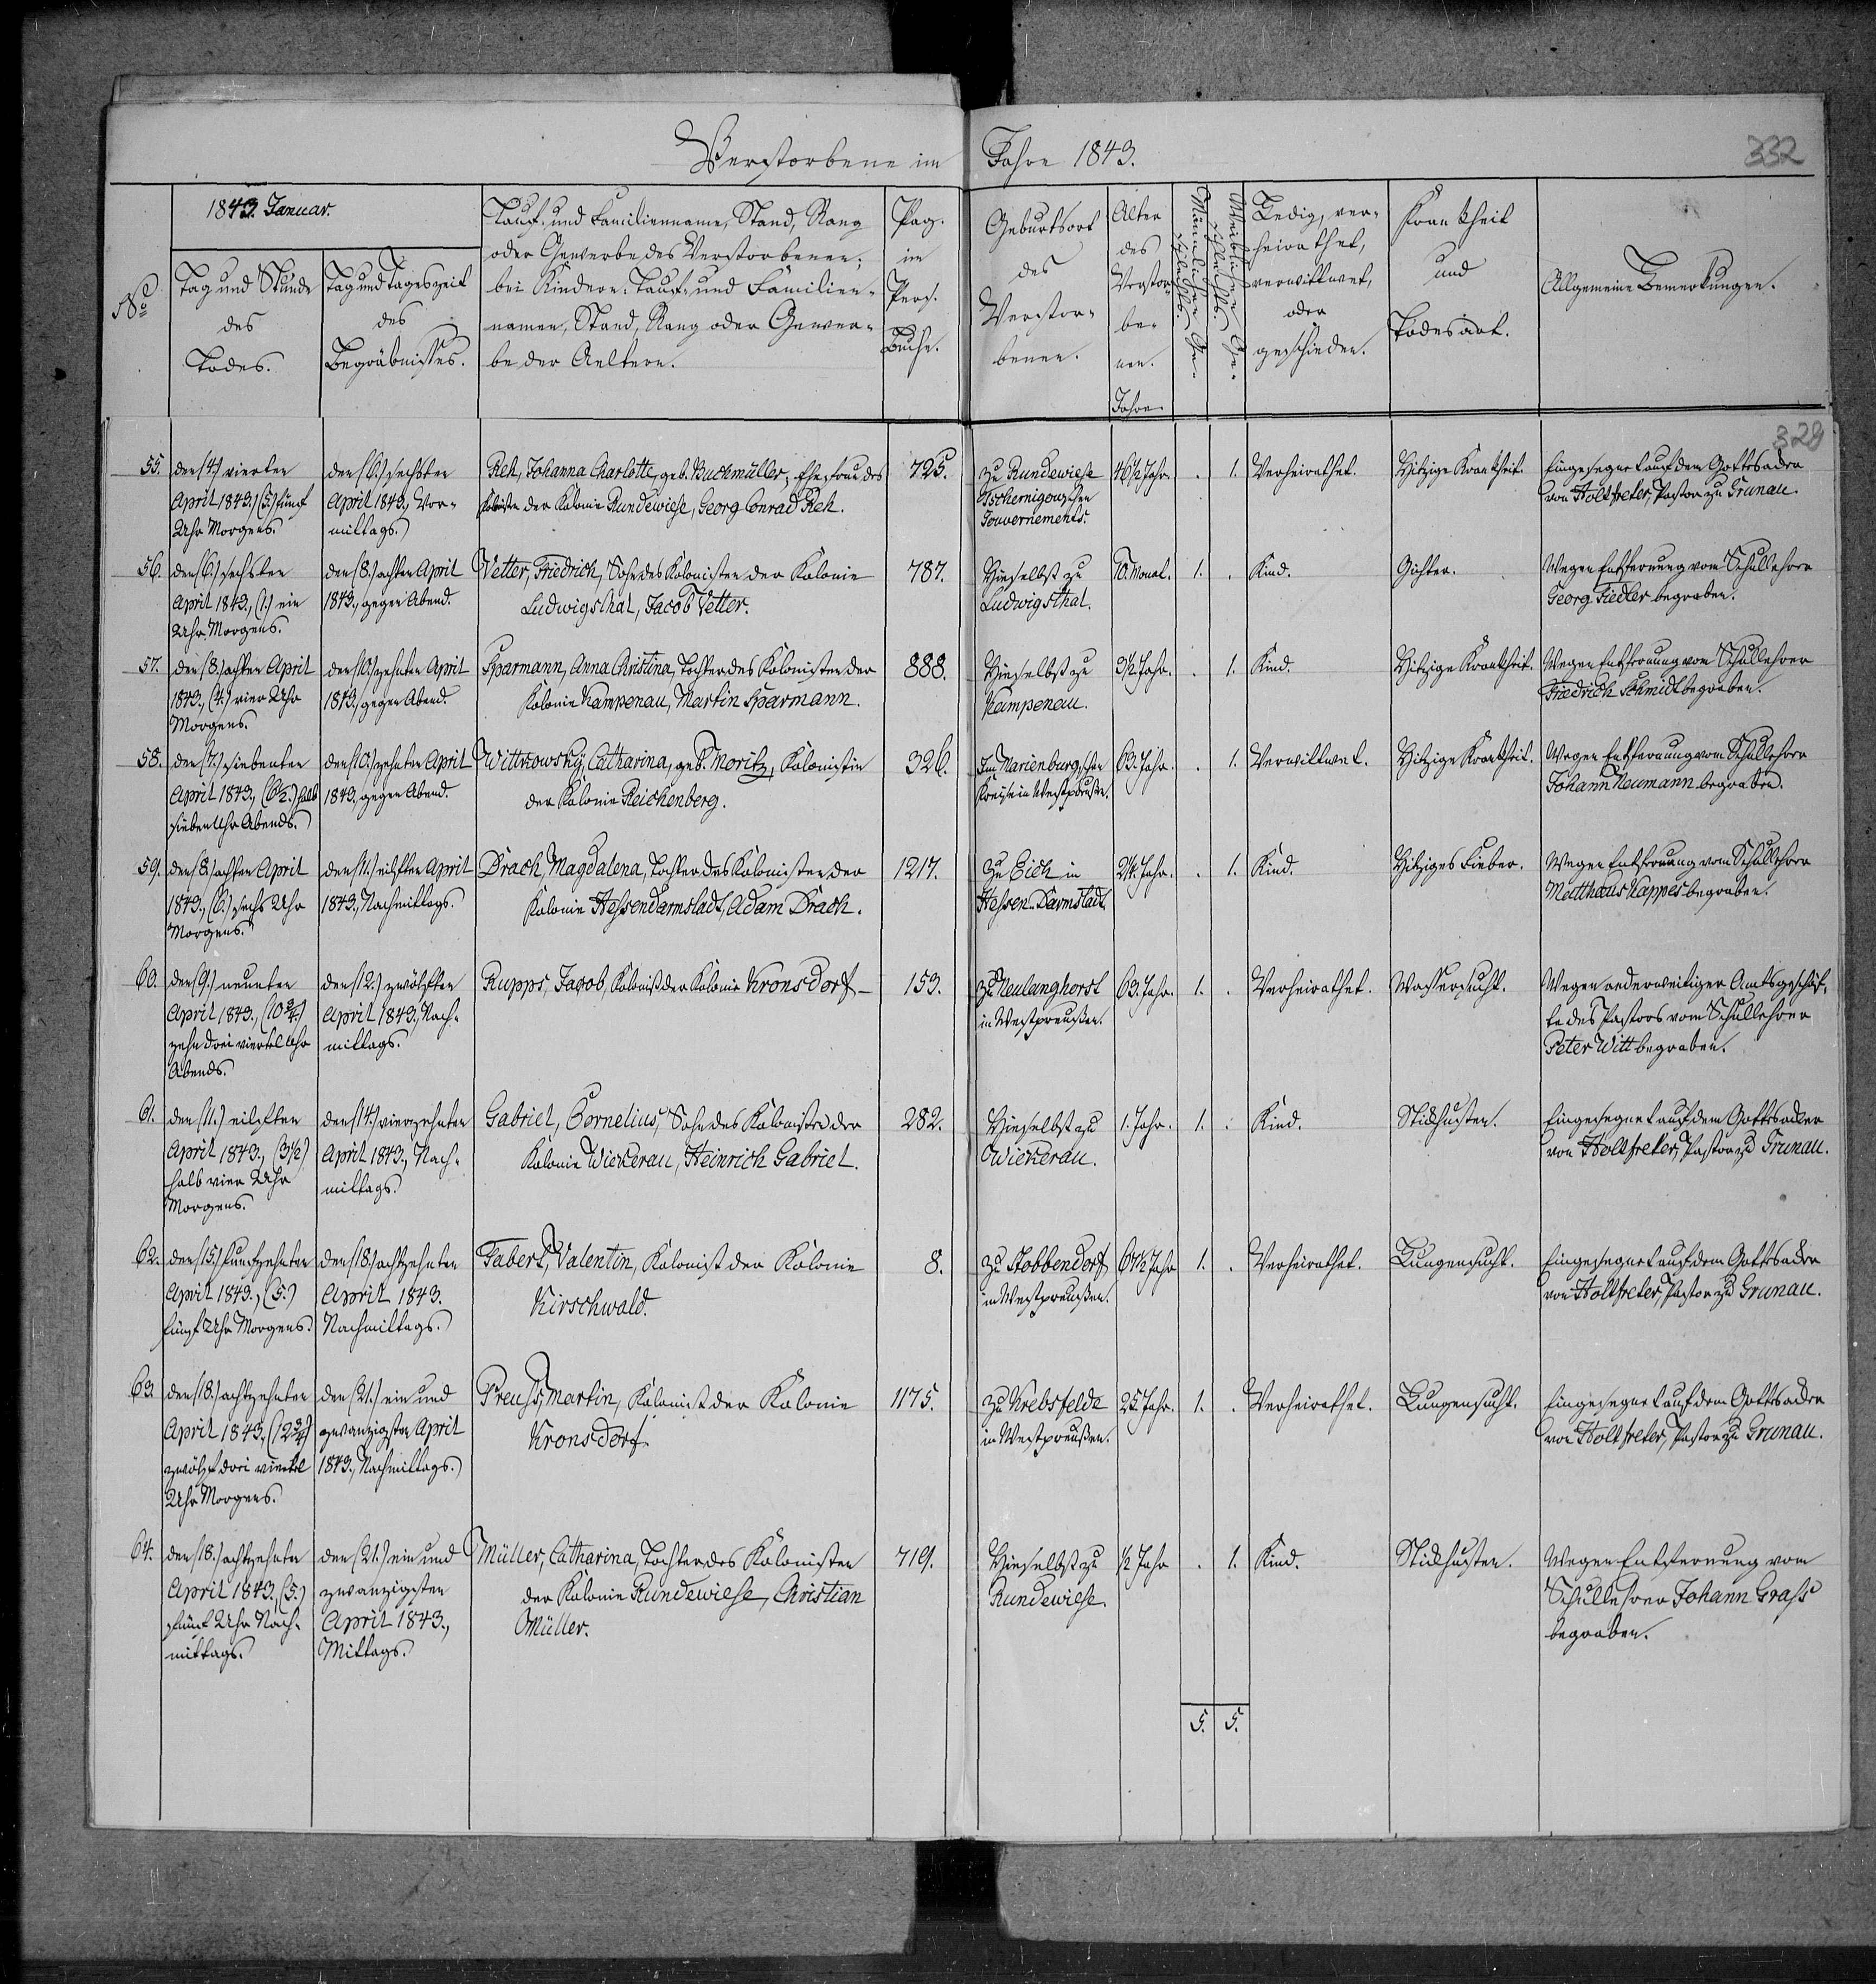 Verstorbene im Jahre 1843.
332
1843. Januar.
No
Tag und Stunde
des
Todes.
Tag und Tageszeit
des
Begräbnisses.
Tauf- und Familienname, Stand, Rang
oder Gewerbe des Verstorbenen;
bei Kindern: Tauf- und Familien-
namen, Stand, Rang oder Gewer-
be der Aeltern.
Pag.
im
Pers.
Buche.
Geburtsort
des
Verstor-
benen.
Alter
des
Verstor-
be-
nen.
Jahre
Männlichen Ge-
schlechts.
Weiblichen Ge-
schlechts.
Ledig, ver-
heirathet,
verwittwet,
oder
geschieden.
Krankheit
und
Todesart.
Allgemeine Bemerkungen.
329
55.
den (4.) vierten
April 1843, (5.) fünf
Uhr Morgens.
den (6.) sechsten
April 1843, Vor-
mittags.
Reh, Johanna Charlotte, geb. Buchmüller, Ehefrau des
Kolonisten der Kolonie Rundewiese, Georg Conrad Reh.
725.
Zu Rundewiese
Tschernigowschen
Gouvernements.
46 1/2 Jahr.
.
1.
Verheirathet.
Hitzige Krankheit.
Eingesegnet auf dem Gottesacker
von Holtfreter, Pastor zu Grunau.
56.
den (6.) sechsten
April 1843, (1.) ein
Uhr Morgens.
den (8.) achten April
1843., gegen Abend.
Vetter, Friedrich, Sohn des Kolonisten der Kolonie
Ludwigsthal, Jacob Vetter.
787.
Hieselbst zu
Ludwigsthal.
10. Monat.
1.
.
Kind.
Gichter.
Wegen Entfernung vom Schullehrer
Georg Fiedler begraben.
57.
den (8.) achten April
1843., (4.) vier Uhr
Morgens.
den (10.) zehnten April
1843., gegen Abend.
Sparmann, Anna Christina, Tochter des Kolonisten der
Kolonie Kampenau, Martin Sparmann.
888.
Hieselbst zu
Kampenau.
3 1/2 Jahr.
.
1.
Kind.
Hitzige Krankheit.
Wegen Entfernung vom Schullehrer
Friedrich Schmidt begraben.
58.
den (7.) siebenten
April 1843., (6 1/2.) halb
sieben Uhr Abends.
den (10.) zehnten April
1843. gegen Abend.
Wittkowsky, Catharina, geb. Moritz, Kolonistin
der Kolonie Reichenberg.
326.
Im Marienburgschen
Kreise in Westpreußen.
63. Jahr.
.
1.
Verwittwet.
Hitzige Krankheit.
Wegen Entfernung vom Schullehrer
Johann Neumann begraben.
59.
den (8.) achten April
1843., (6.) sechs Uhr
Morgens.
den (11.) eilften April
1843., Nachmittags.
Drach, Magdalena, Tochter des Kolonisten der
Kolonie Hessendarmstadt, Adam Drach.
1217.
Zu Eich in
Hessen-Darmstadt.
2 1/4. Jahr.
.
1.
Kind.
Hitziges Fieber.
Wegen Entfernung vom Schullehrer
Matthäus Kappes begraben.
60.
den (9.) neunten
April 1843., (10 3/4.)
zehn drei viertel Uhr
Abends.
den (12.) zwölften
April 1843., Nach-
mittags.
Rupps, Jacob, Kolonist der Kolonie Kronsdorf
153.
Zu Neulanghorst
in Westpreußen.
63. Jahr.
1.
.
Verheirathet.
Wassersucht.
Wegen anderweitiger Amtsgeschäf-
te des Pastors vom Schullehrer
Peter Witt begraben.
61.
den (11.) eilften
April 1843., (3 1/2)
halb vier Uhr
Morgens.
den (14.) vierzehnten
April 1843., Nach-
mittags.
Gabriel, Cornelius, Sohn des Kolonisten der
Kolonie Wickerau, Heinrich Gabriel.
282.
Hieselbst zu
Wickerau.
1. Jahr.
1.
.
Kind.
Stickhusten.
Eingesegnet auf dem Gottesacker
von Holtfreter, Pastor zu Grunau.
62.
den (15.) fünfzehnten
April 1843., (5.)
fünf Uhr Morgens.
den (18.) achtzehnten
April 1843.
Nachmittags.
Tabert, Valentin, Kolonist der Kolonie
Kirschwald.
8.
Zu Stobbendorf
in Westpreußen.
67 1/2 Jahr
1.
.
Verheirathet.
Lungensucht.
Eingesegnet auf dem Gottesacker
von Holtfreter, Pastor zu Grunau.
63.
den (18.) achtzehnten
April 1843., (12 3/4.)
zwölf drei viertel
Uhr Morgens.
den (21.) ein und
zwanzigsten April
1843., Nachmittags.
Preuss, Martin, Kolonist der Kolonie
Kronsdorf.
1175.
Zu Krebsfelde
in Westpreußen.
25. Jahr.
1.
.
Verheirathet.
Lungensucht.
Eingesegnet auf dem Gottesacker
von Holtfreter, Pastor zu Grunau.
64.
den (18.) achtzehnten
April 1843., (5.)
fünf Uhr Nach-
mittags.
den (21.) ein und
zwanzigsten
April 1843.,
Mittags.
Müller, Catharina, Tochter des Kolonisten
der Kolonie Rundewiese, Christian
Müller.
719.
Hieselbst zu
Rundewiese.
1/2 Jahr
.
1.
Kind.
Stickhusten.
Wegen Entfernung vom
Schullehrer Johann Grass
begraben.
5.
5.